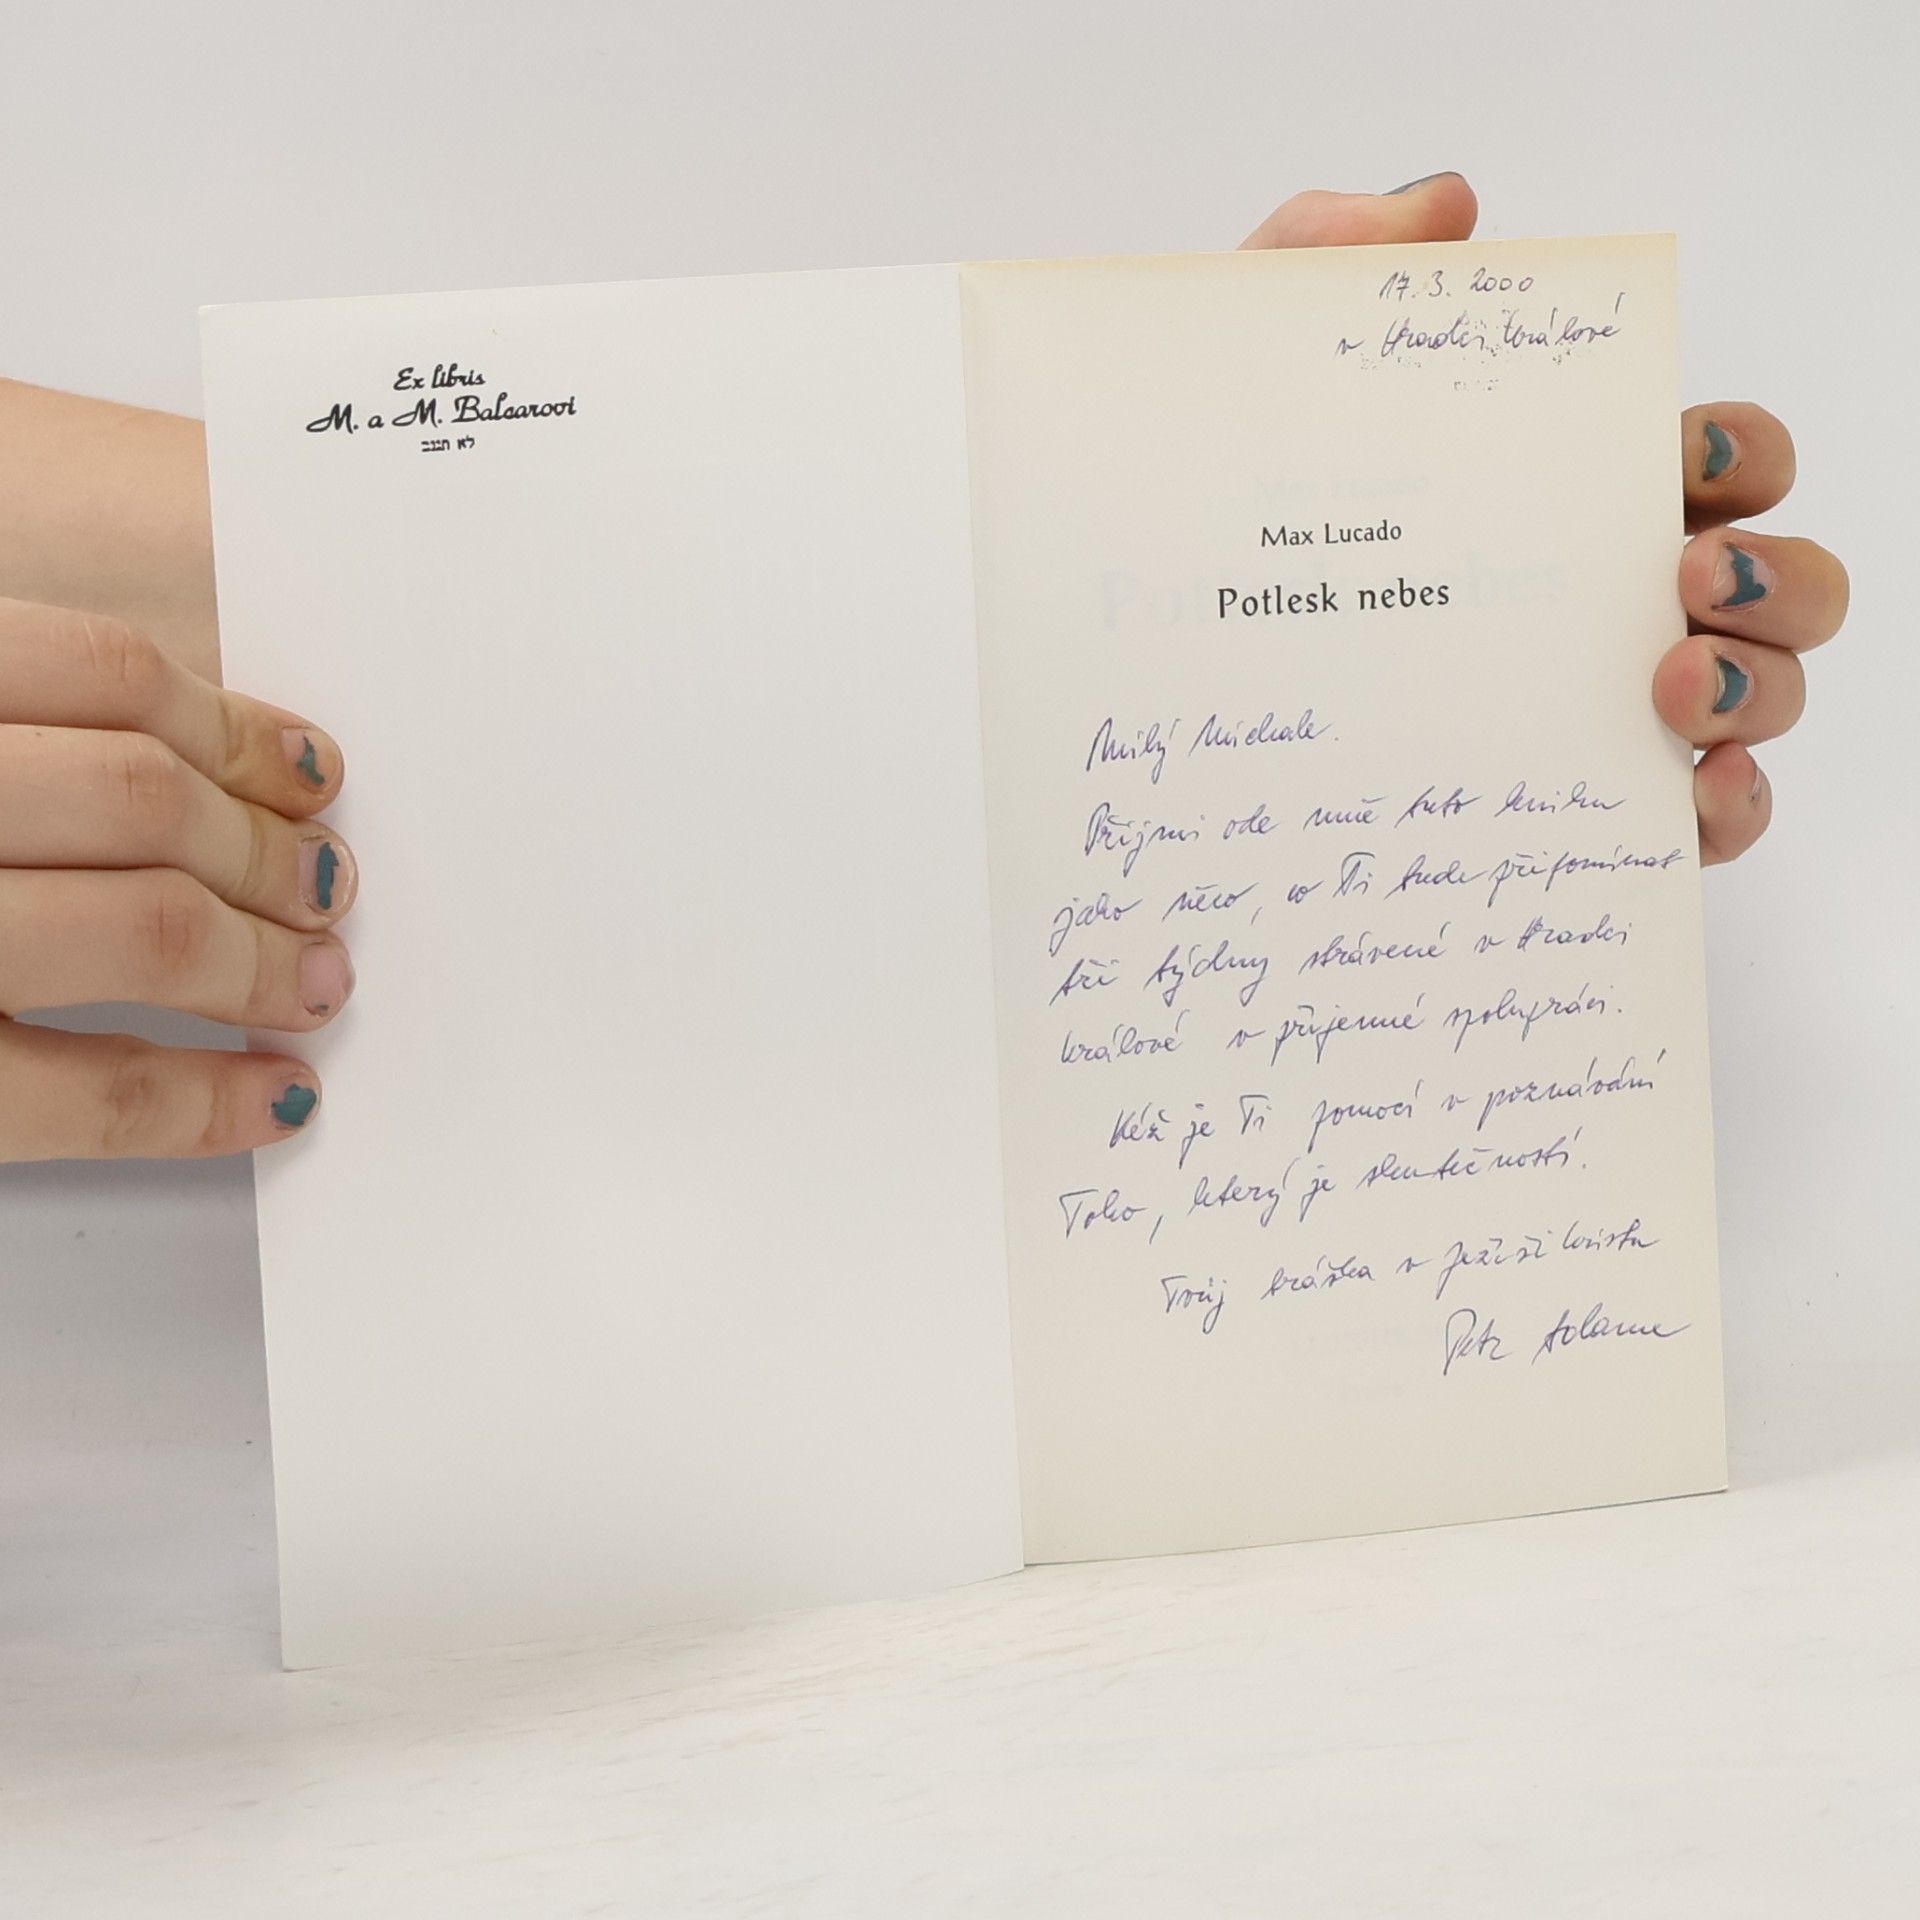 Ex libris
M. a M. Balcarovi
לא תגנב
17. 3. 2000
v Hradci Králové
Max Lucado
Potlesk nebes
Milý Michale.
Přijmi ode mně tuto knihu
jako něco, co Ti bude připomínat
tři týdny strávené v Hradci
Králové v příjemné spolupráci.
Kéž je Ti pomocí v poznávání
Toho, který je skutečností.
Tvůj bráška v Ježíši Kristu
Petr